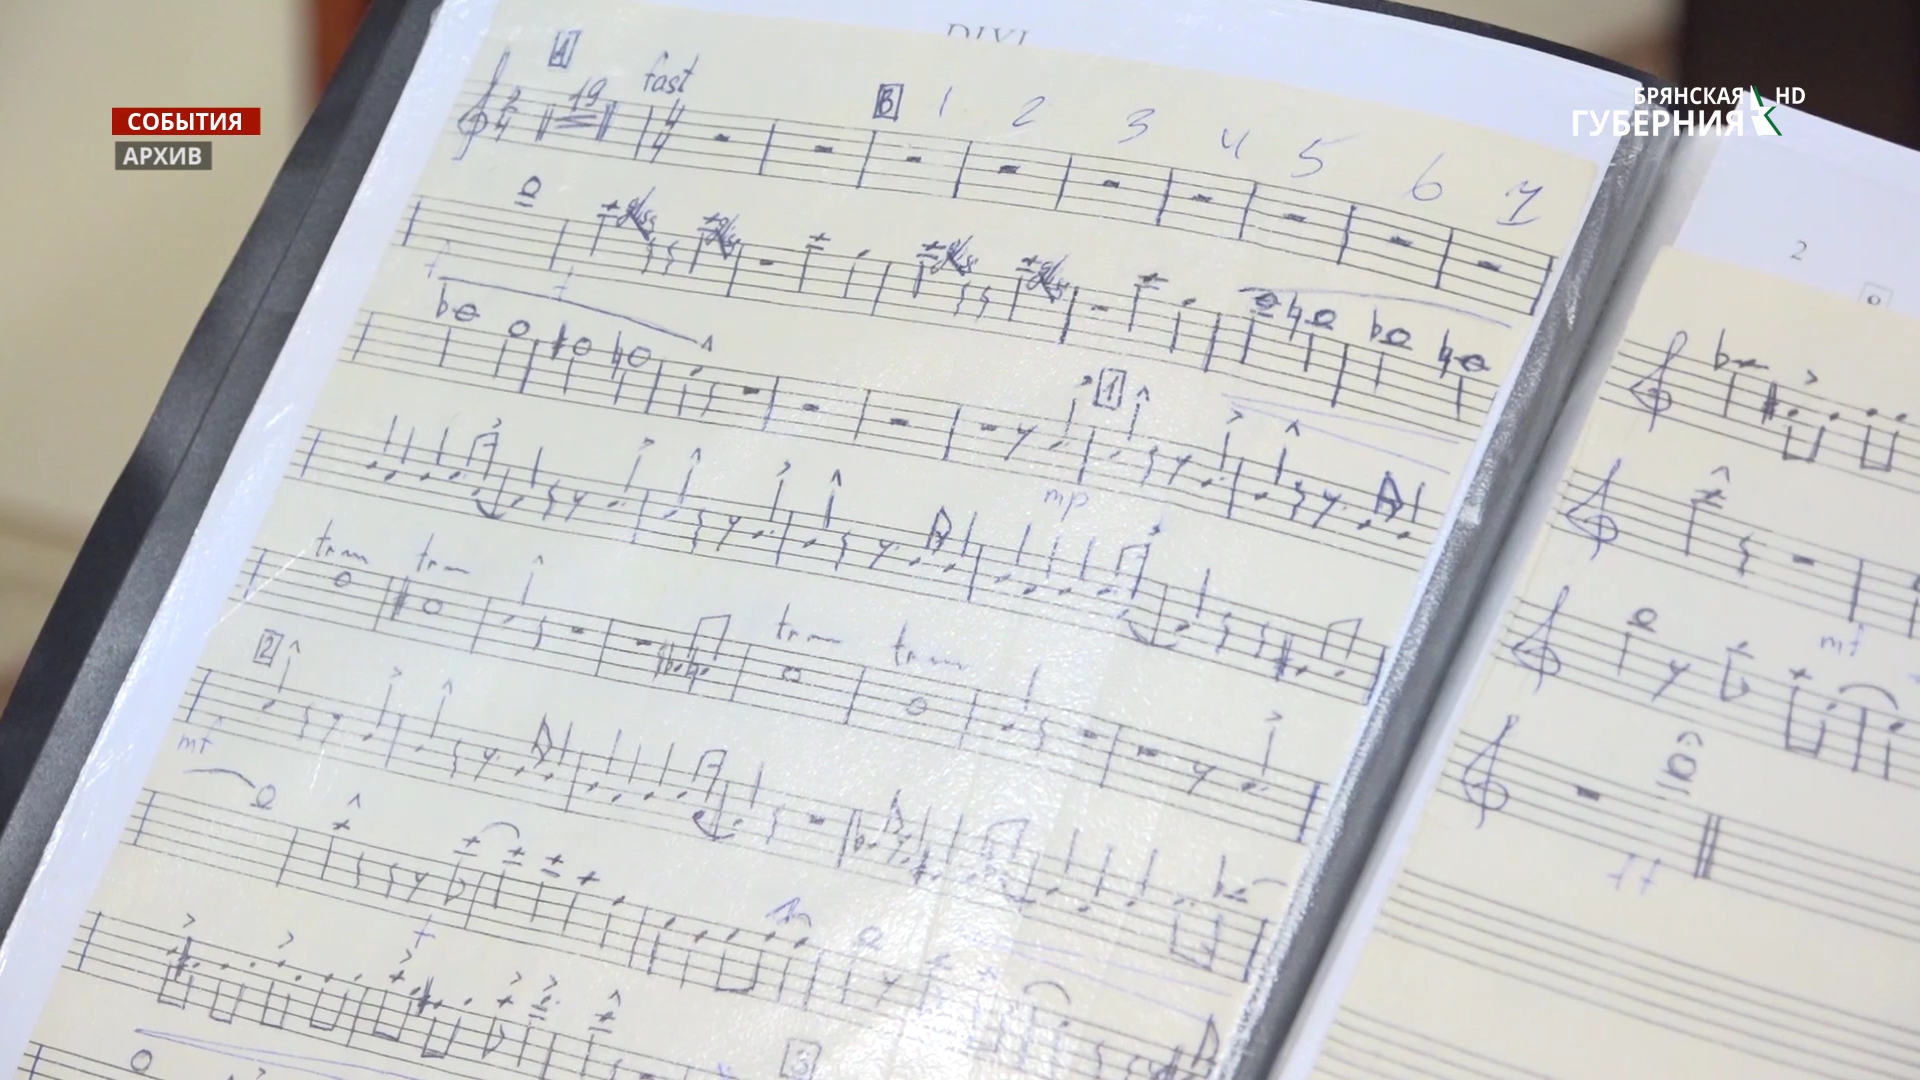 DIVI
A
19
fast
B 1 2 3 4 5 6 7
СОБЫТИЯ
АРХИВ
БРЯНСКАЯ HD
ГУБЕРНИЯ
2
gliss gliss gliss gliss
f f
1
mp
tr tr tr tr
2
mf
mf
f
ff
3